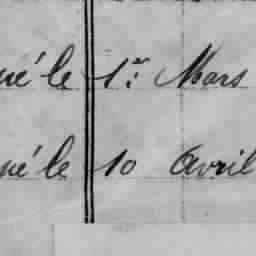 né le 1er Mars
né le 10 Avril